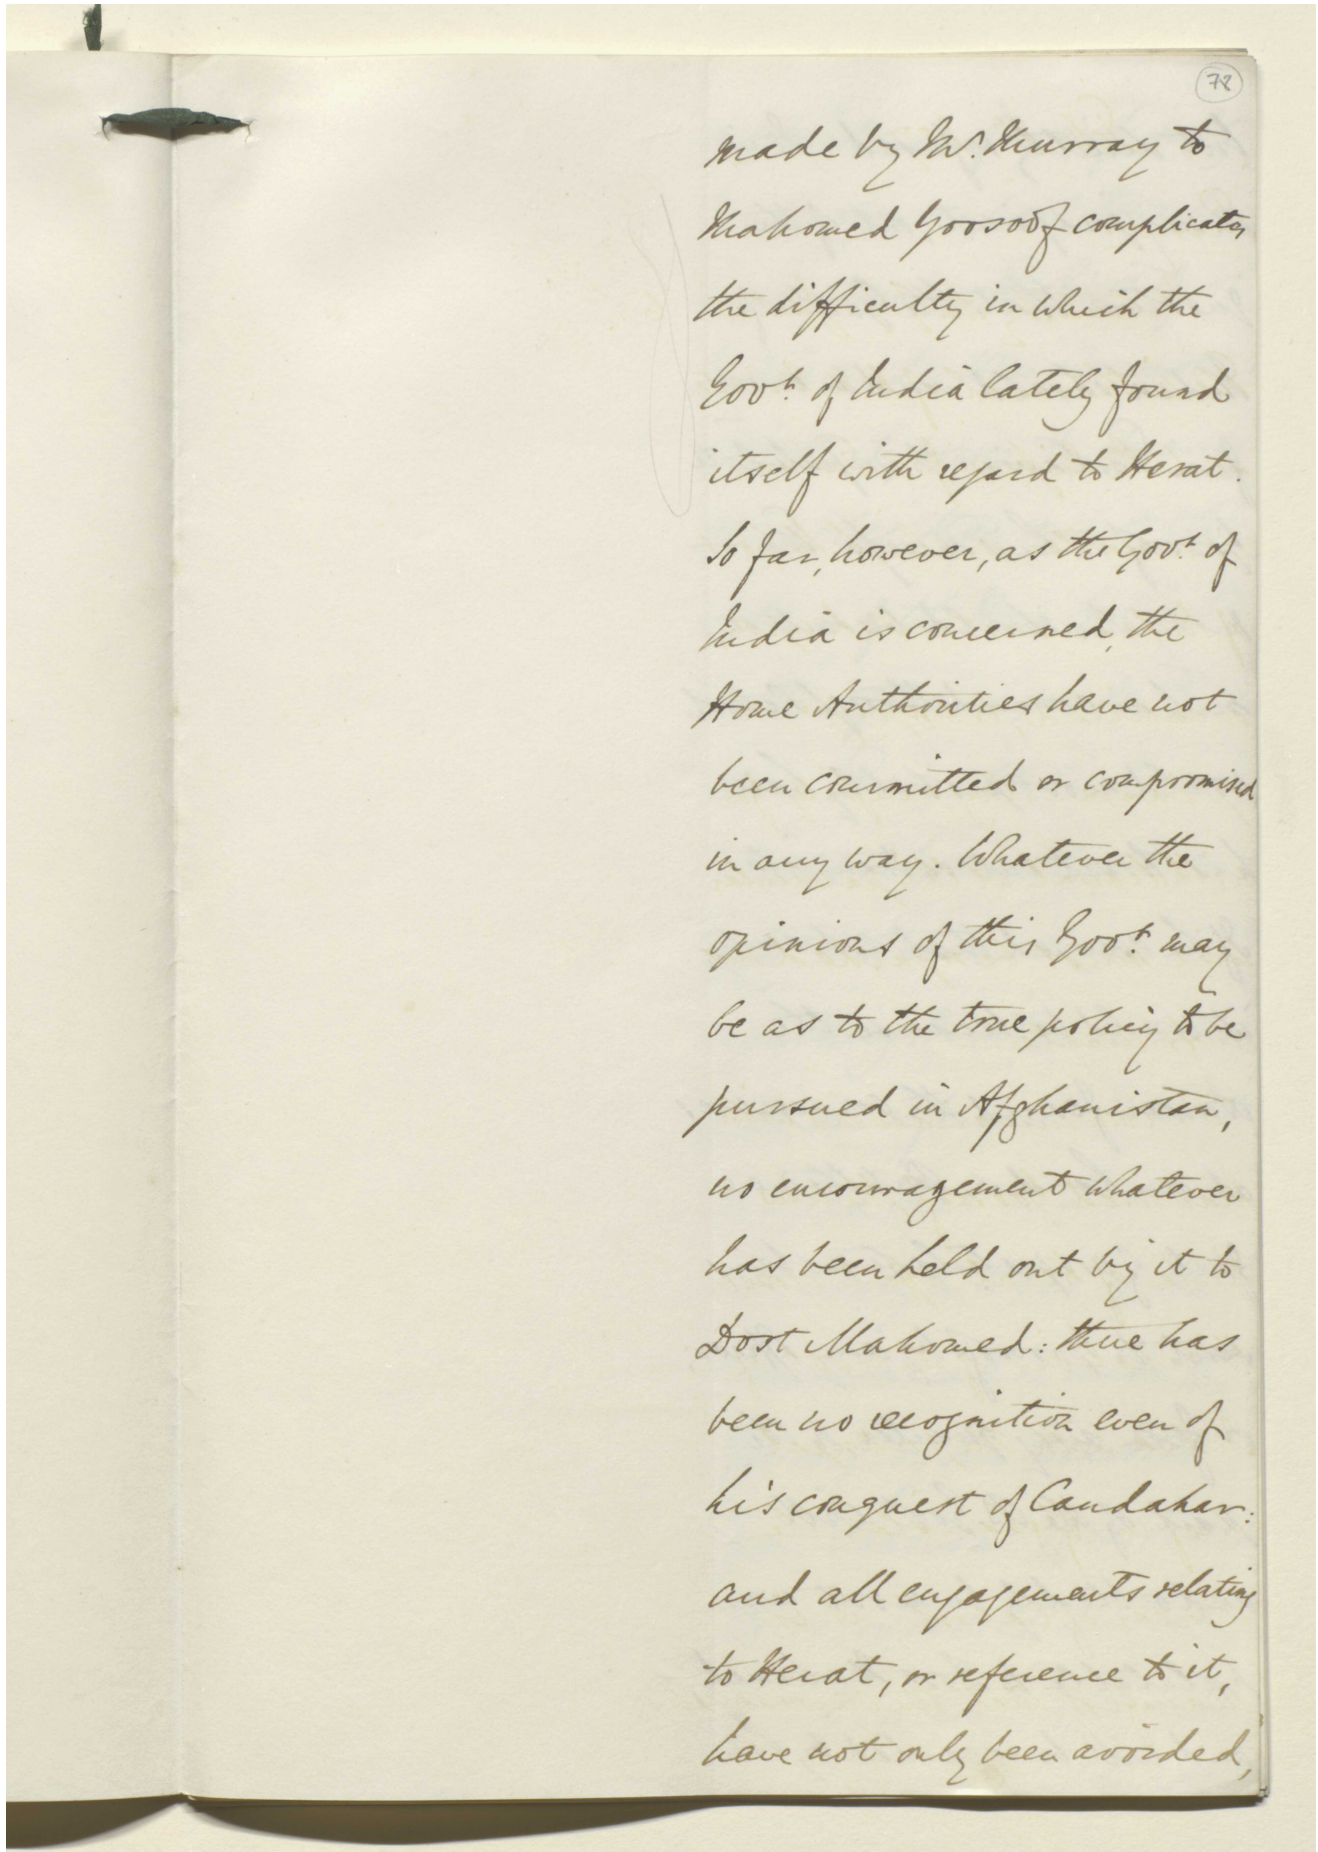 78
made by Mr. Murray to
Mahomed Yoosoof complicates
the difficulty in which the
Govt. of India lately found
itself with regard to Herat.
So far, however, as the Govt. of
India is concerned, the
Home Authorities have not
been committed or compromised
in any way. Whatever the
opinions of this Govt. may
be as to the true policy to be
pursued in Afghanistan,
no encouragement whatever
has been held out by it to
Dost Mahomed: there has
been no recognition even of
his conquest of Candahar:
and all engagements relating
to Herat, or reference to it,
have not only been avoided,